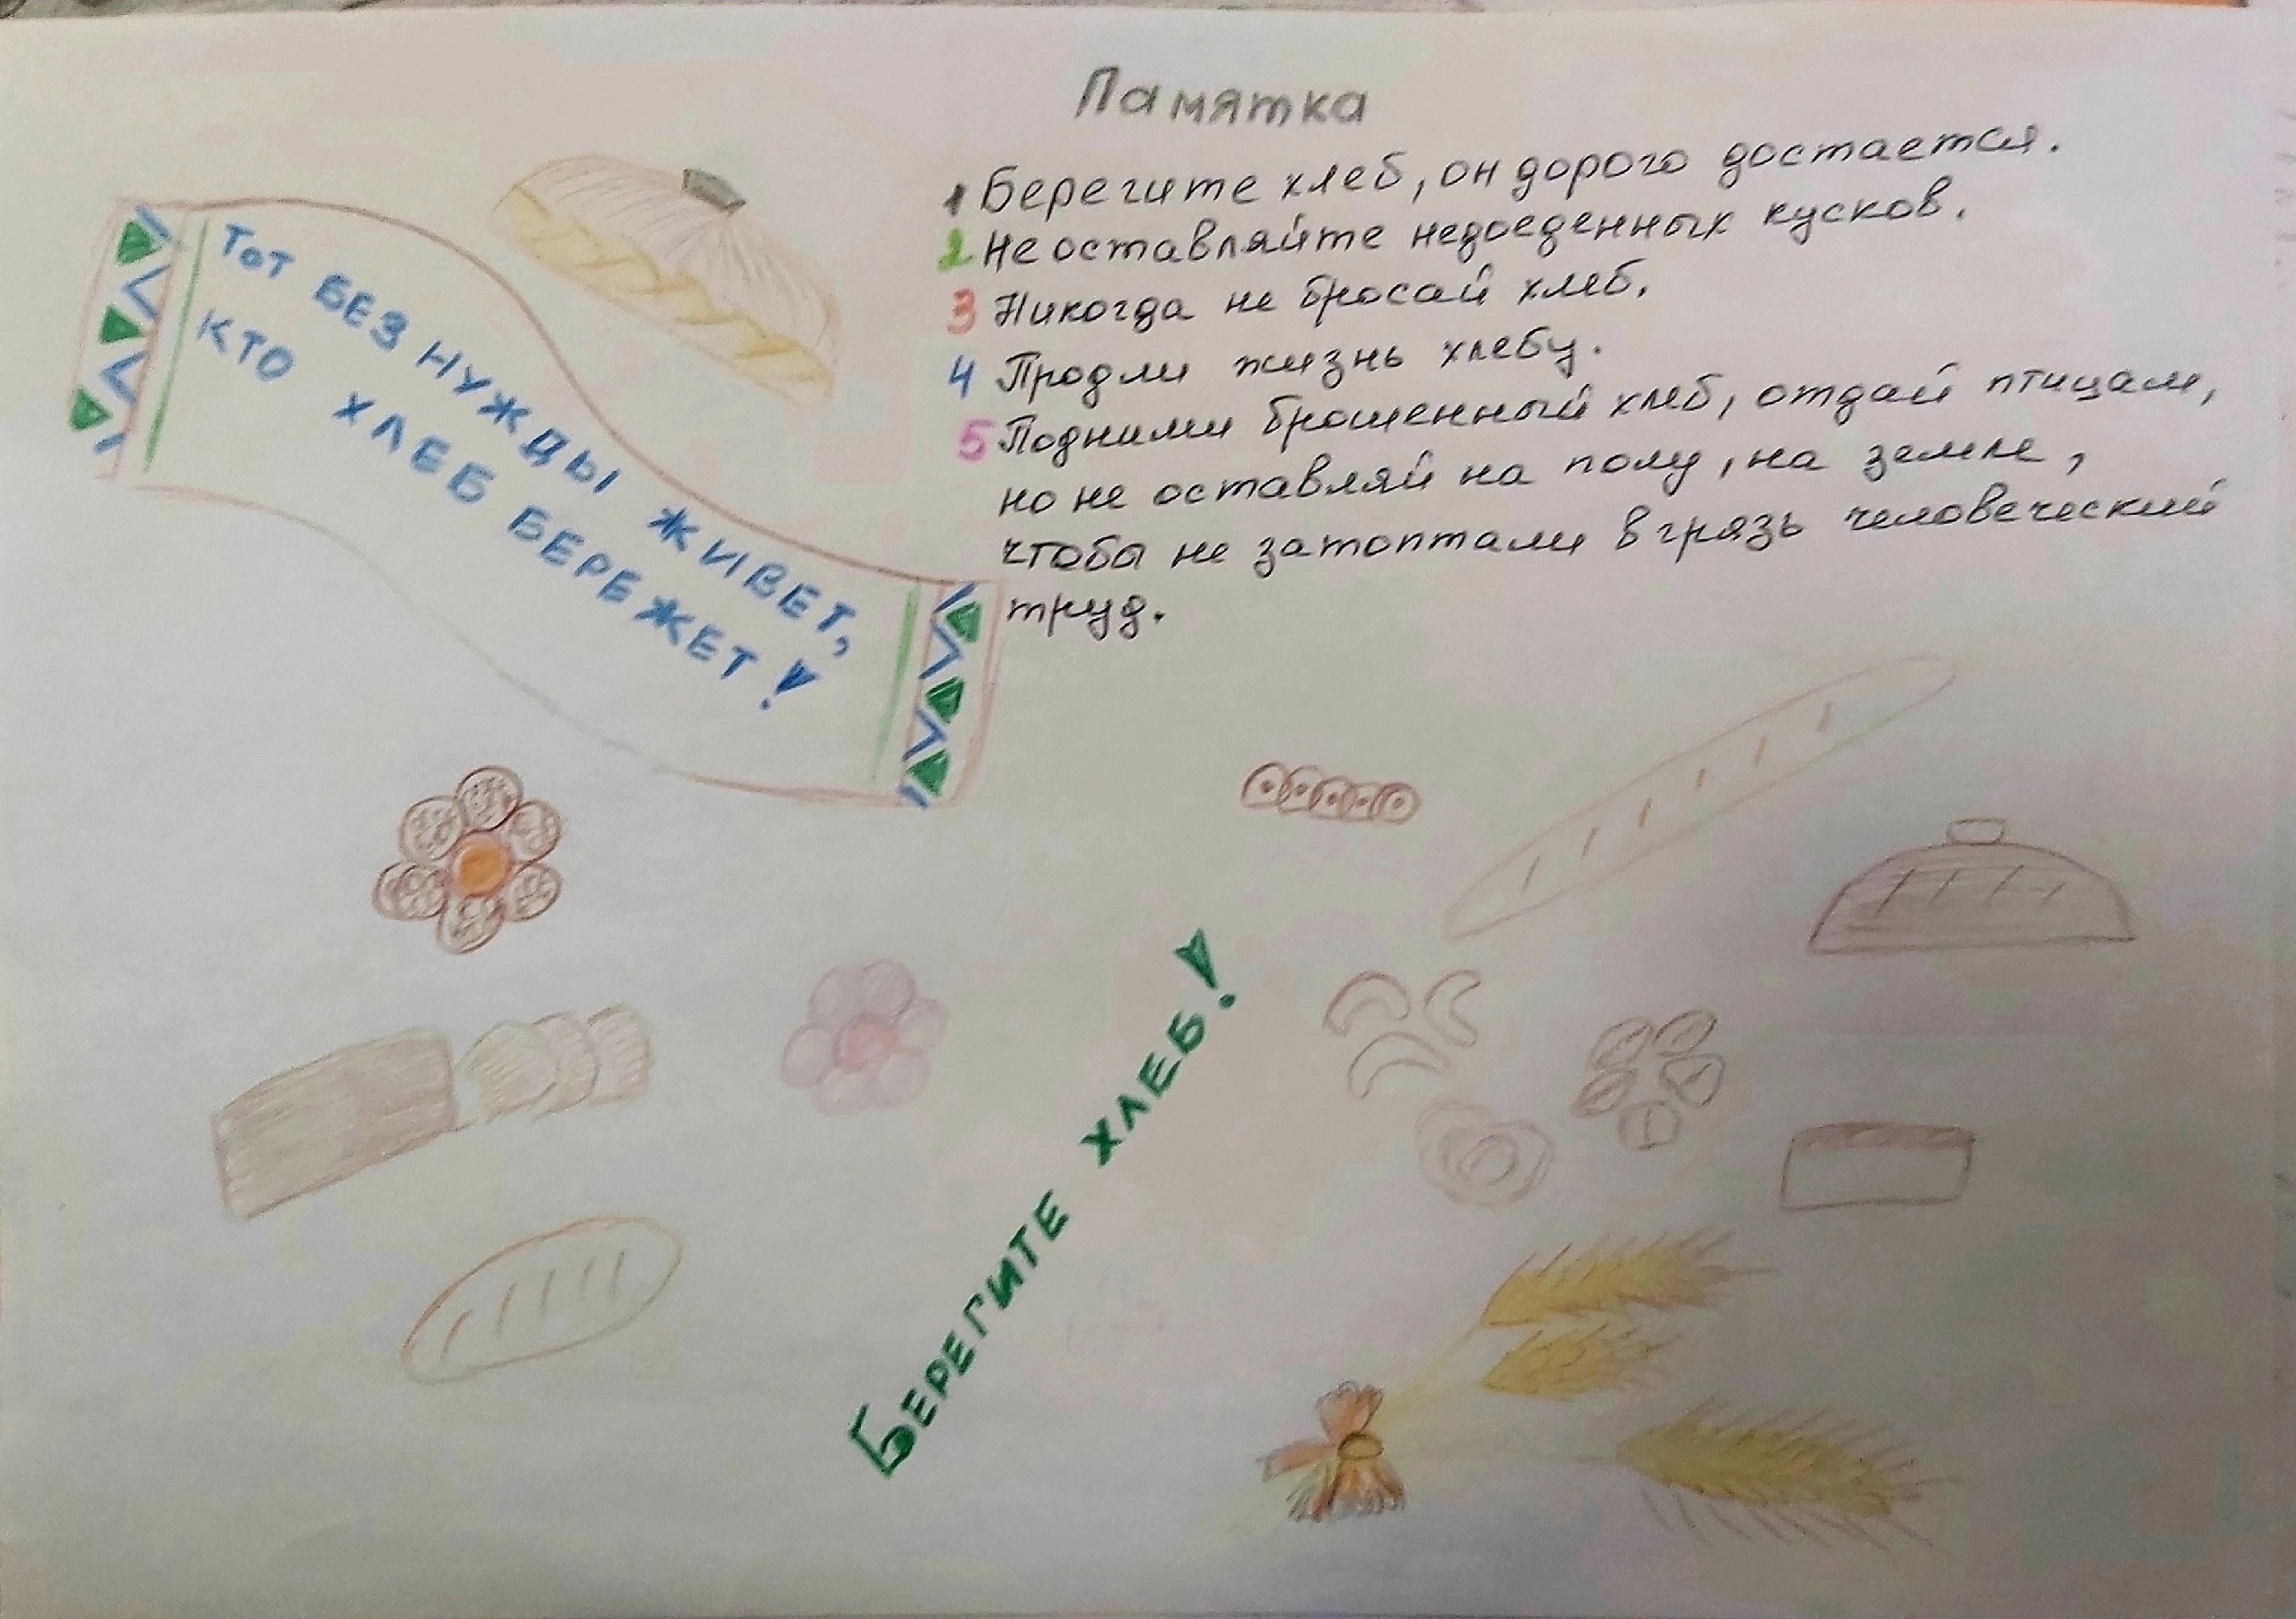 Памятка
1 Берегите хлеб, он дорого достается.
2 Не оставляйте недоеденных кусков.
3 Никогда не бросай хлеб.
4 Продли жизнь хлебу.
5 Подними брошенный хлеб, отдай птицам,
но не оставляй на полу, на земле,
чтобы не затоптали в грязь человеческий
труд.
ТОТ БЕЗ НУЖДЫ ЖИВЕТ,
КТО ХЛЕБ БЕРЕЖЕТ!
БЕРЕГИТЕ ХЛЕБ!